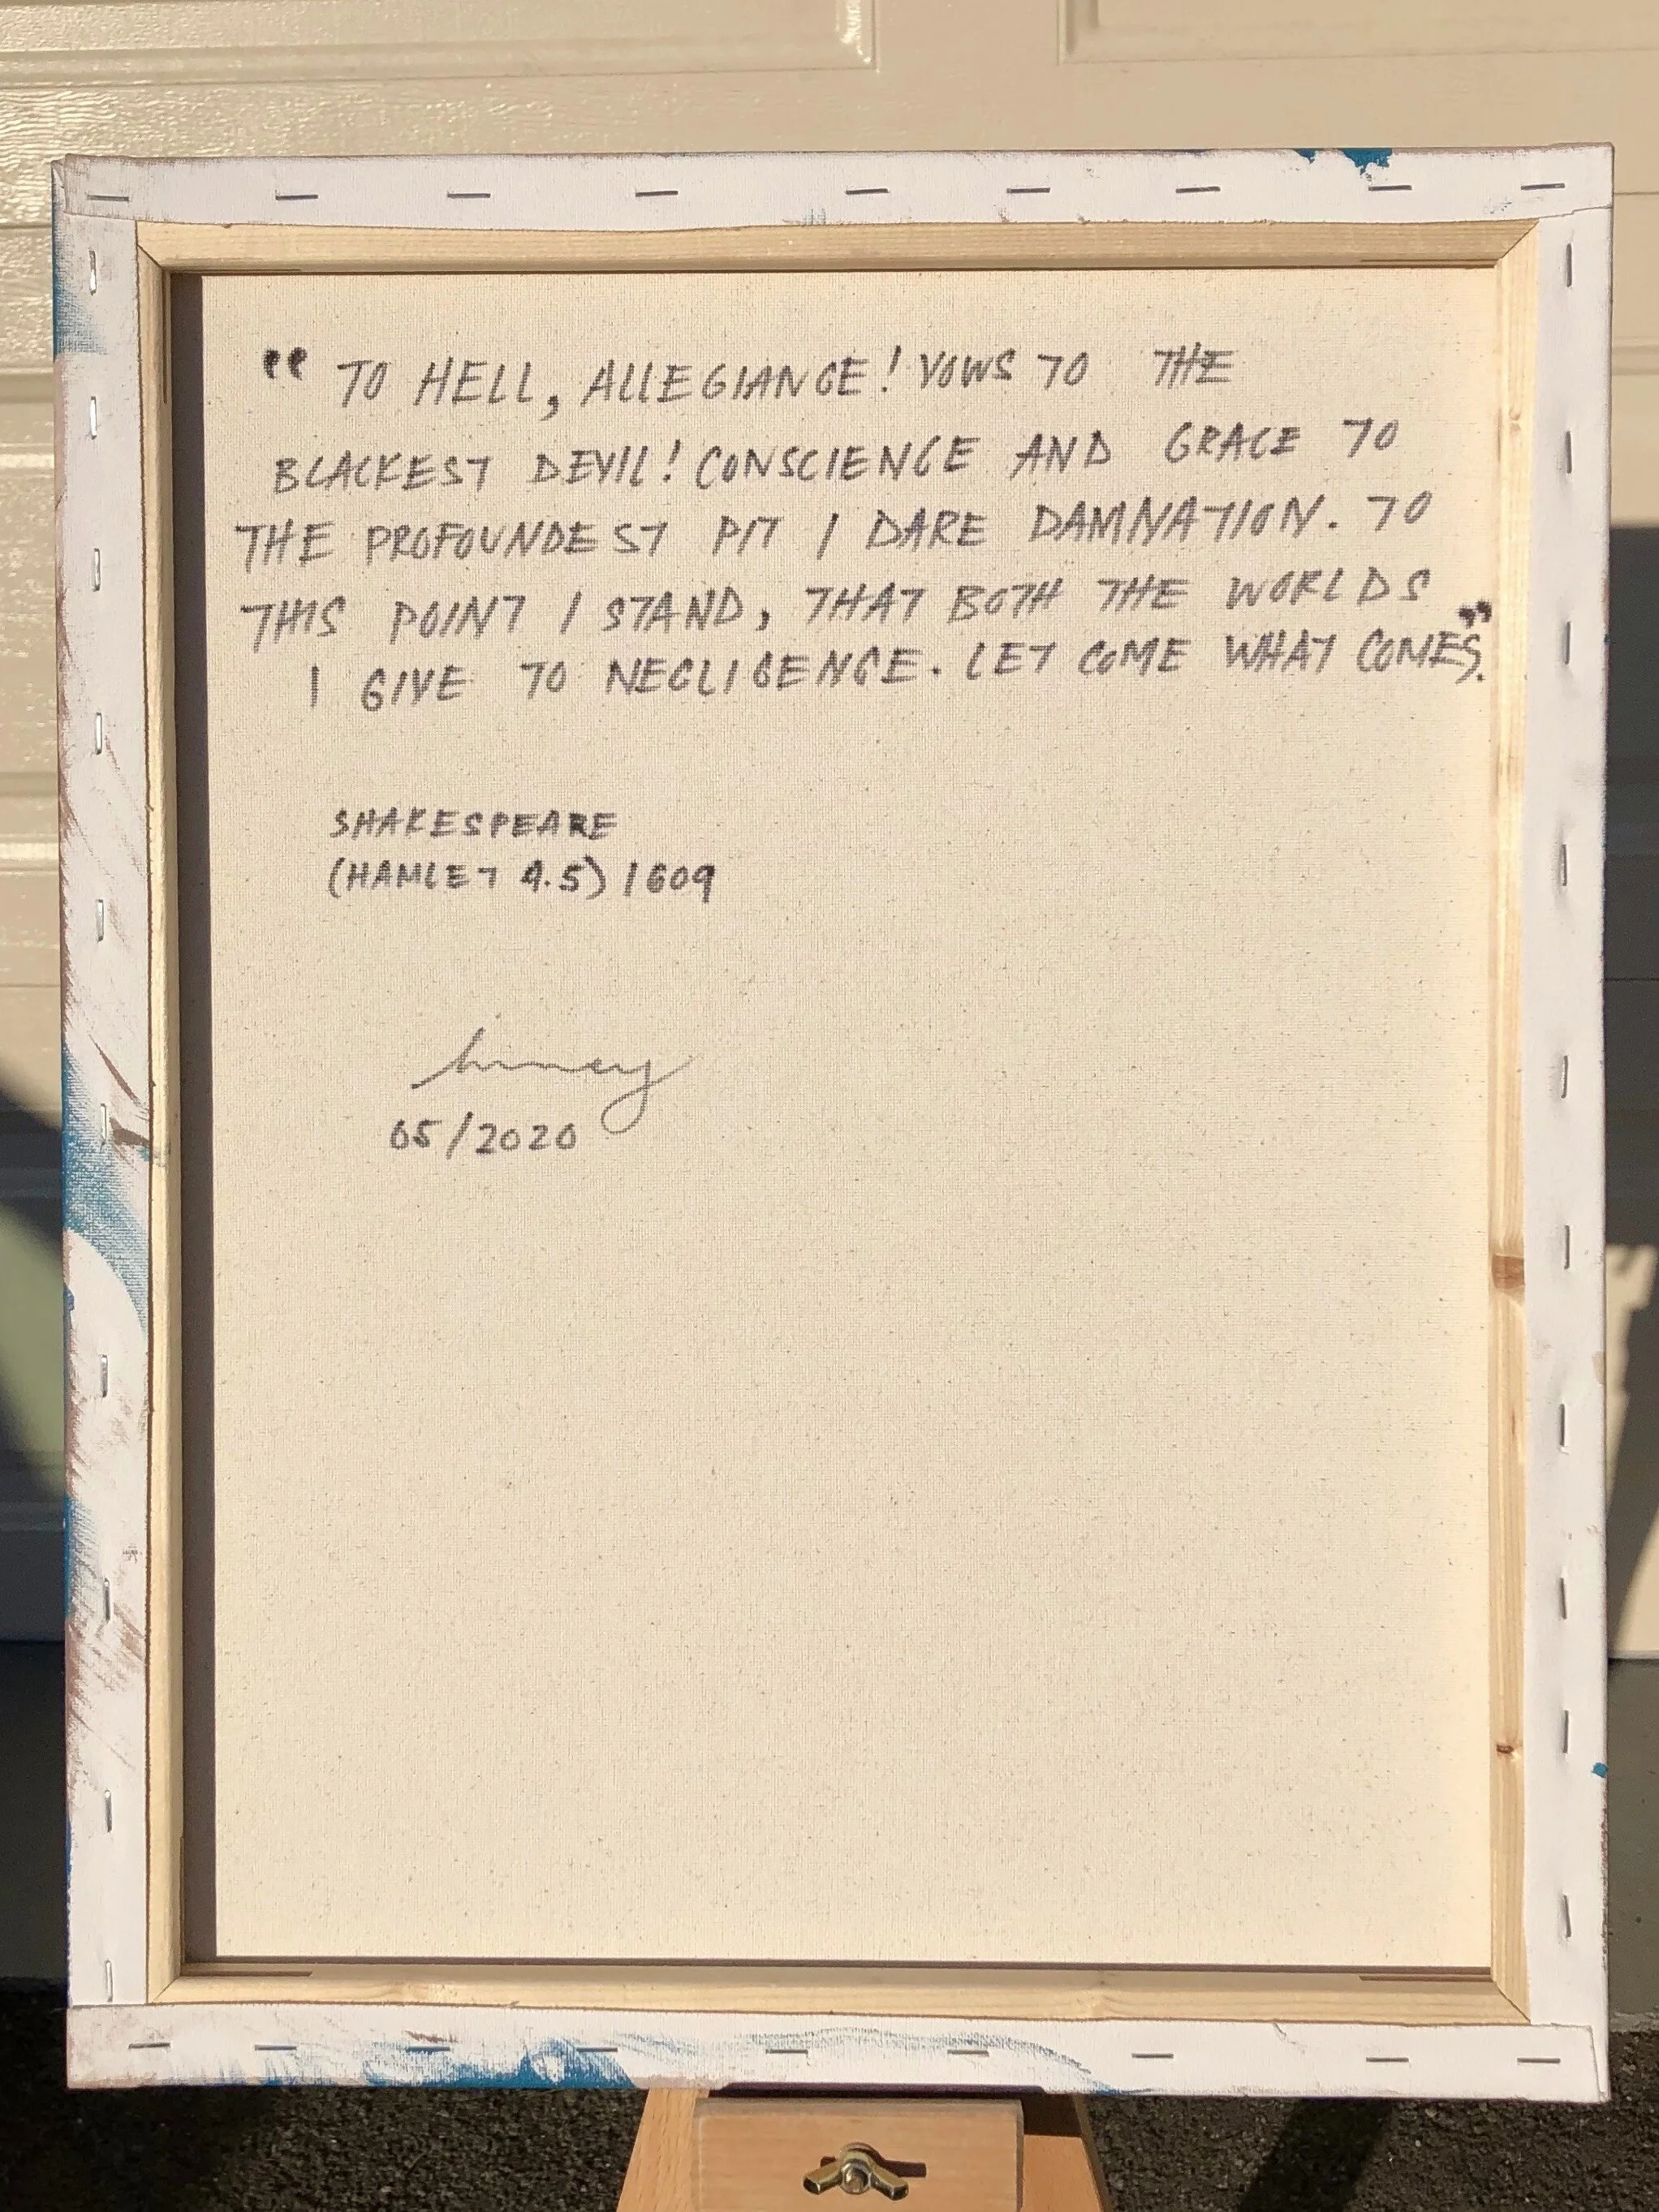 “TO HELL, ALLEGIANCE! VOWS TO THE
BLACKEST DEVIL! CONSCIENCE AND GRACE TO
THE PROFOUNDEST PIT I DARE DAMNATION. TO
THIS POINT I STAND, THAT BOTH THE WORLDS
I GIVE TO NEGLIGENCE. LET COME WHAT COMES.”
SHAKESPEARE
(HAMLET 4.5) 1609
05/2020